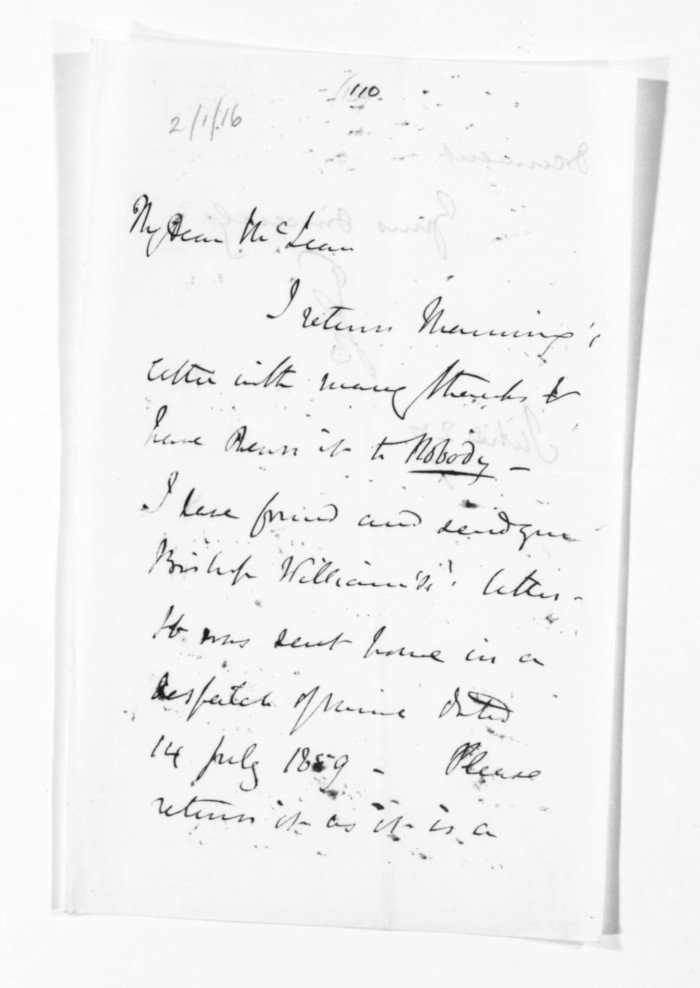 110
2/1/16
My dear McLean
I return Manning's
letter with many thanks &
have shewn it to Nobody -
I have found and send you
Bishop William's' letter -
It was sent home in a
despatch of mine dated
14 July 1859 - Please
return it as it is a